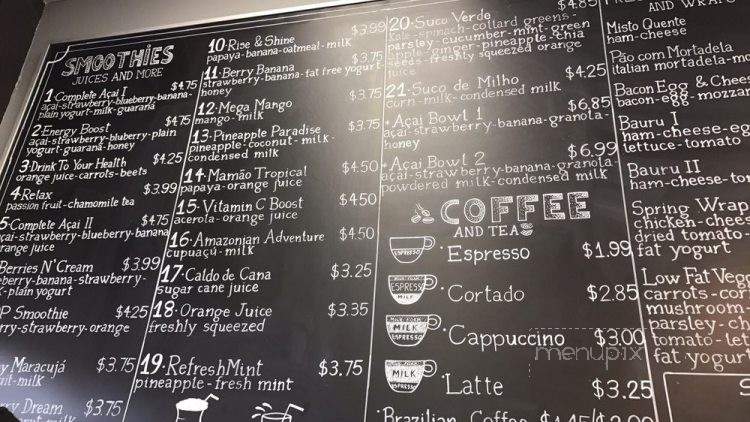 SMOOTHIES
JUICES AND MORE
1 Complete Açaí I $4.75
açaí-strawberry-blueberry-banana-
plain yogurt-milk-guaraná
2 Energy Boost $4.75
açaí-strawberry-bluberry-plain
yogurt-guaraná-honey
3 Drink To Your Health $4.25
orange juice-carrots-beets
4 Relax $3.99
passion fruit-chamomile tea
5 Complete Açaí II $4.75
açaí-strawberry-blueberry-banana
orange juice
Berries N'Cream $3.99
-blueberry-banana-strawberry-
k-plain yogurt
P Smoothie $4.25
rry-strawberry-orange
y Maracujá $3.75
uit-milk
ry Dream $3.75
nut milk
10 Rise & Shine $3.99
papaya-banana-oatmeal-milk
11 Berry Banana $3.75
strawberry-banana-fat free yogurt
honey
12 Mega Mango $3.75
mango-milk
13 Pineapple Paradise $3.75
pineapple-coconut-milk-
condensed milk
14 Mamão Tropical $4.50
papaya-orange juice
15 Vitamin C Boost $4.50
acerola-orange juice
16 Amazonian Adventure $4.50
cupuaçu-milk
17 Caldo de Cana $3.25
sugar cane juice
18 Orange Juice $3.35
freshly squeezed
19 RefreshMint $3.75
pineapple-fresh mint
20 Suco Verde $4.85
Kale-spinach-collard greens-
parsley-cucumber-mint-green
apple-ginger-pineapple-chia
seeds-freshly squeezed orange
juice
21 Suco de Milho $4.25
corn-milk-condensed milk
Açaí Bowl 1 $6.85
açaí-strawberry-banana-granola-
honey
Açaí Bowl 2 $6.99
açaí-strawberry-banana-granola-
powdered milk-condensed milk
COFFEE
AND TEAS
ESPRESSO
Espresso $1.99
ESPRESSO
MILK
Cortado $2.85
MILK FOAM
MILK
ESPRESSO
Cappuccino $3.00
MILK
ESPRESSO
Latte $3.25
Brazilian Coffee $4.45/$3.00
AND WRAPS
Misto Quente
ham-cheese
Pão com Mortadela
italian mortadela-mo
Bacon Egg & Chee
bacon-egg-mozzar
Bauru I
ham-cheese-eg
lettuce-tomato
Bauru II
ham-cheese-to
Spring Wrap
chicken-chee
dried tomato-
fat yogurt
Low Fat Veg
carrots-cor
mushroom
parsley-ch
tomato-let
fat yogur
menupix